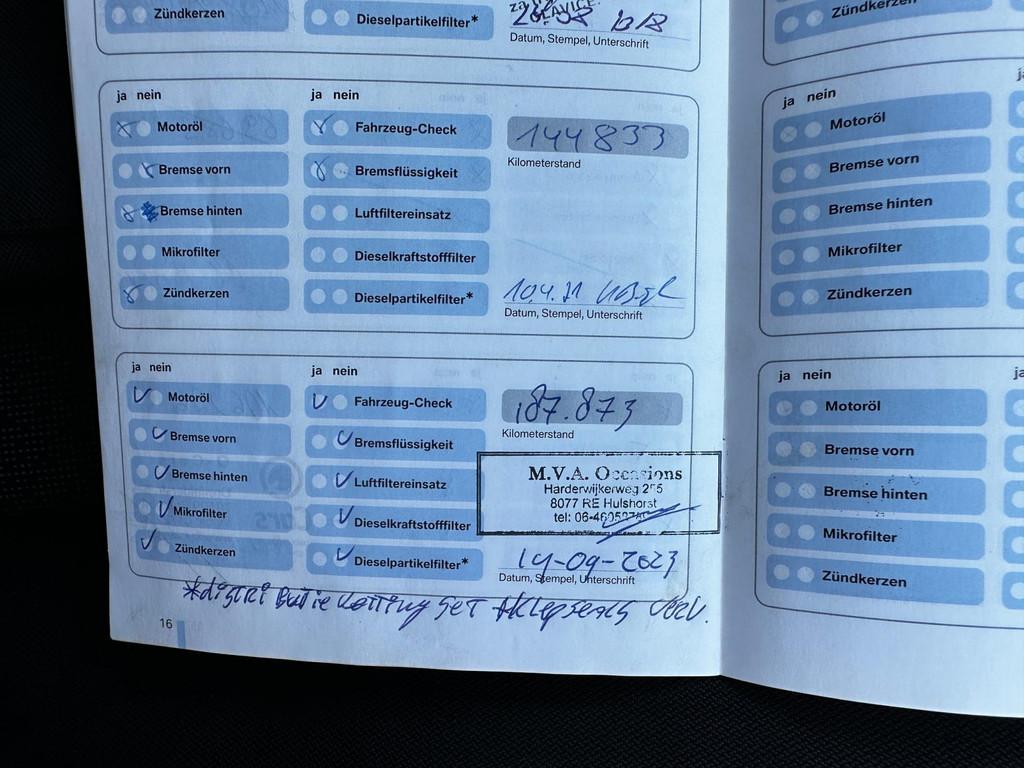 Zündkerzen
Dieselpartikelfilter*
Datum, Stempel, Unterschrift
ja nein
Motoröl
Bremse vorn
Bremse hinten
Mikrofilter
Zündkerzen
ja nein
Fahrzeug-Check
Bremsflüssigkeit
Luftfiltereinsatz
Dieselkraftstofffilter
Dieselpartikelfilter*
144833
Kilometerstand
10.4.21
Datum, Stempel, Unterschrift
ja nein
Motoröl
Bremse vorn
Bremse hinten
Mikrofilter
Zündkerzen
ja nein
Fahrzeug-Check
Bremsflüssigkeit
Luftfiltereinsatz
Dieselkraftstofffilter
Dieselpartikelfilter*
187.873
Kilometerstand
M.V.A. Occasions
Harderwijkerweg 255
8077 RE Hulshorst
tel: 06-
14-09-2023
Datum, Stempel, Unterschrift
*distributie ketting set + klepseals verv.
16
Zündkerzen
ja nein
Motoröl
Bremse vorn
Bremse hinten
Mikrofilter
Zündkerzen
ja nein
Motoröl
Bremse vorn
Bremse hinten
Mikrofilter
Zündkerzen